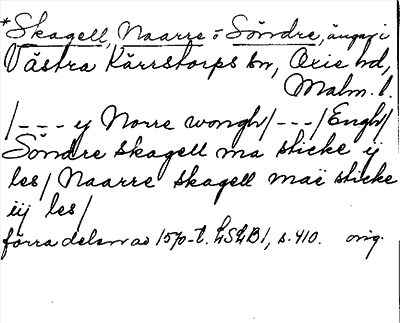 *Skagell, Naarre o Söndre, ängar i
Västra Kärrstorps sn, Oxie hd,
Malm. l.
/--- y Norre wongh/---/Engh/
Söndre skagell ma sticke ij
les/ Naarre skagell maë sticke
iij les/
förra delen av 1570-t. LSLB1, s. 410. orig.